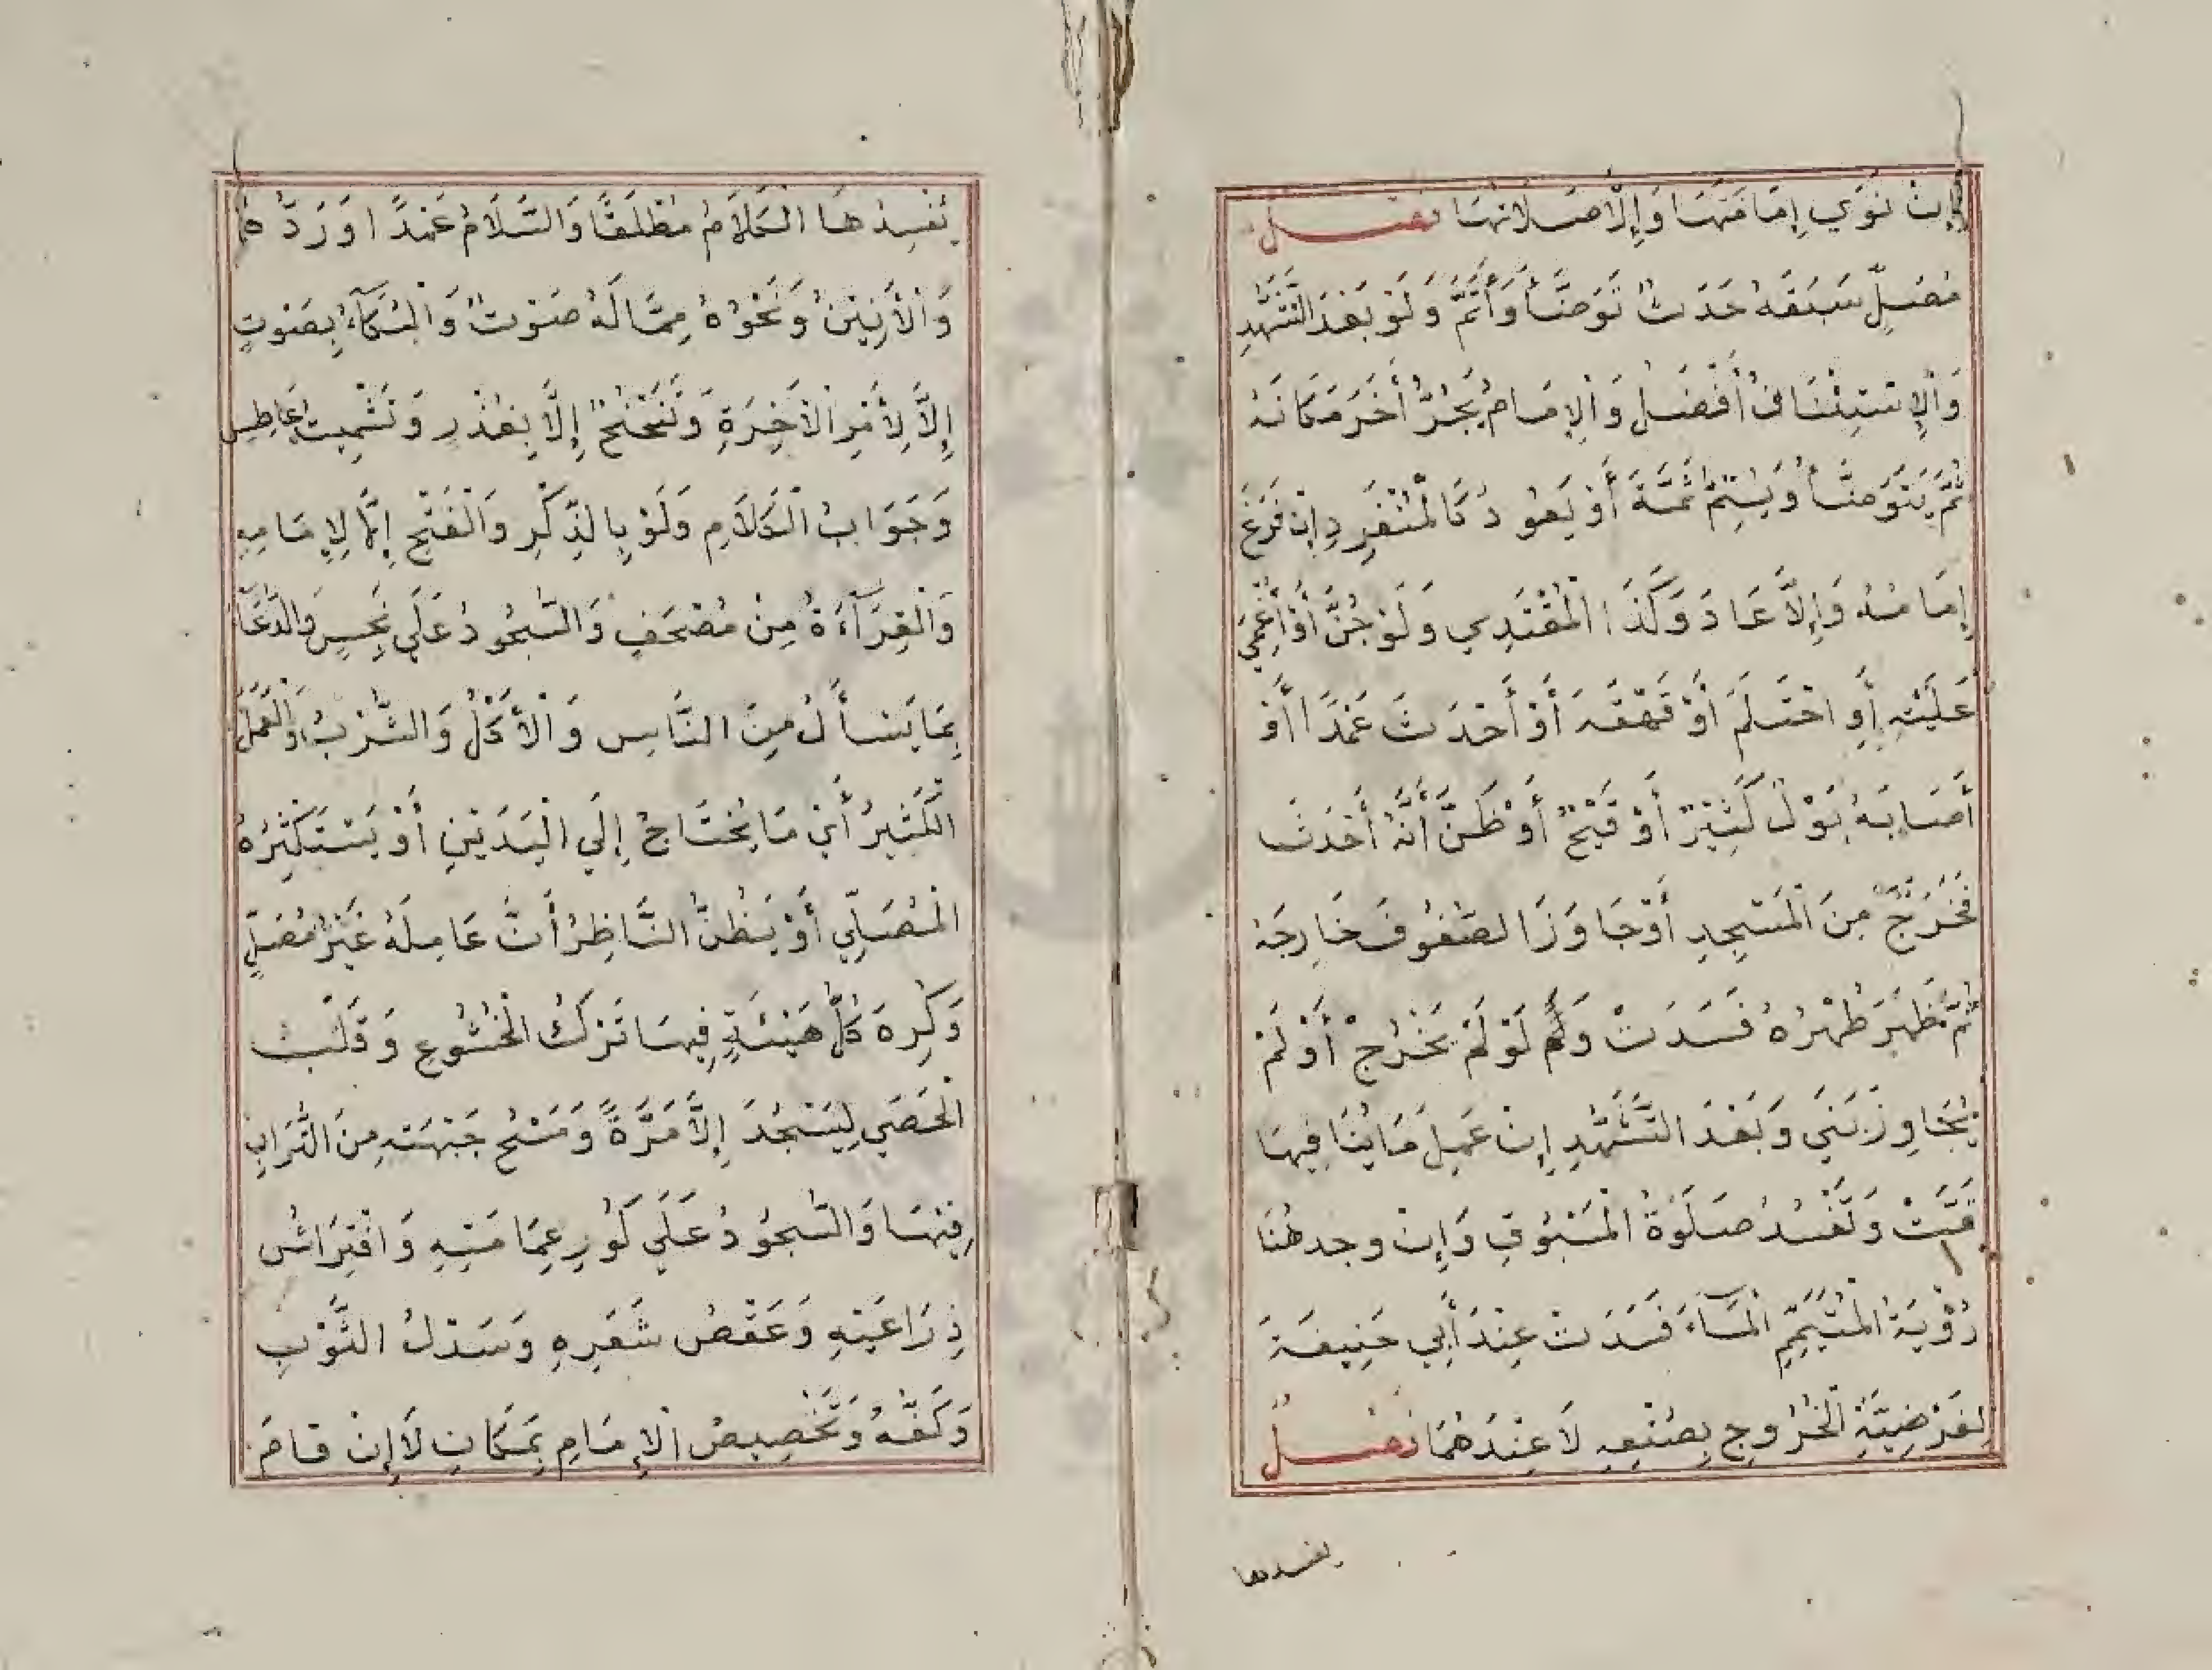 إِنْ نَوَي إِمَامَتَهَا وَإِلَّا صَلَاتَهَا فصل
مُصَلٍّ سَبَقَهُ حَدَثٌ تَوَضَّأَ وَأَتَمَّ وَلَوْ بَعْدَ التَّشَهُّدِ
وَالْإِسْتِئْنَافُ أَفْضَلُ وَالْإِمَامُ يَجُرُّ أَخَرَ مَكَانَهُ
ثُمَّ يَتَوَضَّأُ وَيُتِمُّ ثَمَّةَ أَوْ يَعُودُ كَالْمُنْفَرِدِ إِنْ فَرَغَ
إِمَامُهُ وَإِلَّا عَادَ وَكَذَا الْمُقْتَدِي وَلَوْ جُنَّ أَوْ أُغْمِيَ
عَلَيْهِ أَوِ احْتَلَمَ أَوْ قَهْقَهَ أَوْ أَحْدَثَ عَمْدًا أَوْ
أَصَابَهُ بَوْلٌ كَثِيرٌ أَوْ قَيْحٌ أَوْ ظَنَّ أَنَّهُ أَحْدَثَ
فَخَرَجَ مِنَ الْمَسْجِدِ أَوْ جَاوَزَ الصُّفُوفَ خَارِجَهُ
ثُمَّ ظَهَرَ طُهْرُهُ فَسَدَتْ وَلَوْ لَمْ يَخْرُجْ أَوْ لَمْ
يُجَاوِزْ بَنَي وَبَعْدَ التَّشَهُّدِ إِنْ عَمِلَ مَا يُنَافِيهَا
تَمَّتْ وَتَفْسُدُ صَلَوةُ الْمَسْبُوقِ وَإِنْ وجد هُنَا
رُؤْيَةُ الْمُتَيَمِّمِ الْمَآءَ فَسَدَتْ عِنْدَ أَبِي حَنِيفَةَ
لِفَرْضِيَّةِ الْخُرُوجِ بِصُنْعِهِ لَا عِنْدَهُمَا فصل
يفسدها
يُفْسِدُهَا الْكَلَامُ مُطْلَقًا وَالسَّلَامُ عَمْدًا اوَ رَدُّهُ
وَالْأَنِينُ وَنَحْوُهُ مِمَّا لَهُ صَوْتٌ وَالْبُكَآءُ بِصَوْتٍ
إِلَّا لِأَمْرِ الْآخِرَةِ وَتَنَحْنُحٌ إِلَّا بِعُذْرٍ وَتَشْمِيتُ عَاطِسٍ
وَجَوَابُ الْكَلَامِ وَلَوْ بِالذِّكْرِ وَالْفَتْحِ إِلَّا لِإِمَامِهِ
وَالْقِرَآءَةُ مِنْ مُصْحَفٍ وَالسُّجُودُ عَلَي نَجِسٍ وَالدُّعَآءُ
بِمَا يَسْأَلُ مِنَ النَّاسِ وَالْأَكْلُ وَالشُّرْبُ وَالْعَمَلُ
الْكَثِيرُ أَيْ مَا يَحْتَاجُ إِلَي الْيَدَيْنِ أَوْ يَسْتَكْثِرُهُ
الْمُصَلِّي أَوْ يَظُنُّ النَّاظِرُ أَنَّ عَامِلَهُ غَيْرُ مُصَلٍّ
وَكُرِهَ كُلُّ هَيْئَةٍ فِيهَا تَرْكُ الْخُشُوعِ وَقَلْبُ
الْحَصَي لِيَسْجُدَ إِلَّا مَرَّةً وَمَسْحُ جَبْهَتِهِ مِنَ التُّرَابِ
فِيْهَا وَالسُّجُودُ عَلَي كَوْرِ عِمَامَتِهِ وَافْتِرَاشُ
ذِرَاعَيْهِ وَعَقْصُ شَعَرِهِ وَسَدْلُ الثَّوْبِ
وَكَفُّهُ وَتَخْصِيصُ الْإِمَامِ بِمَكَانٍ لَا إِنْ قَامَ